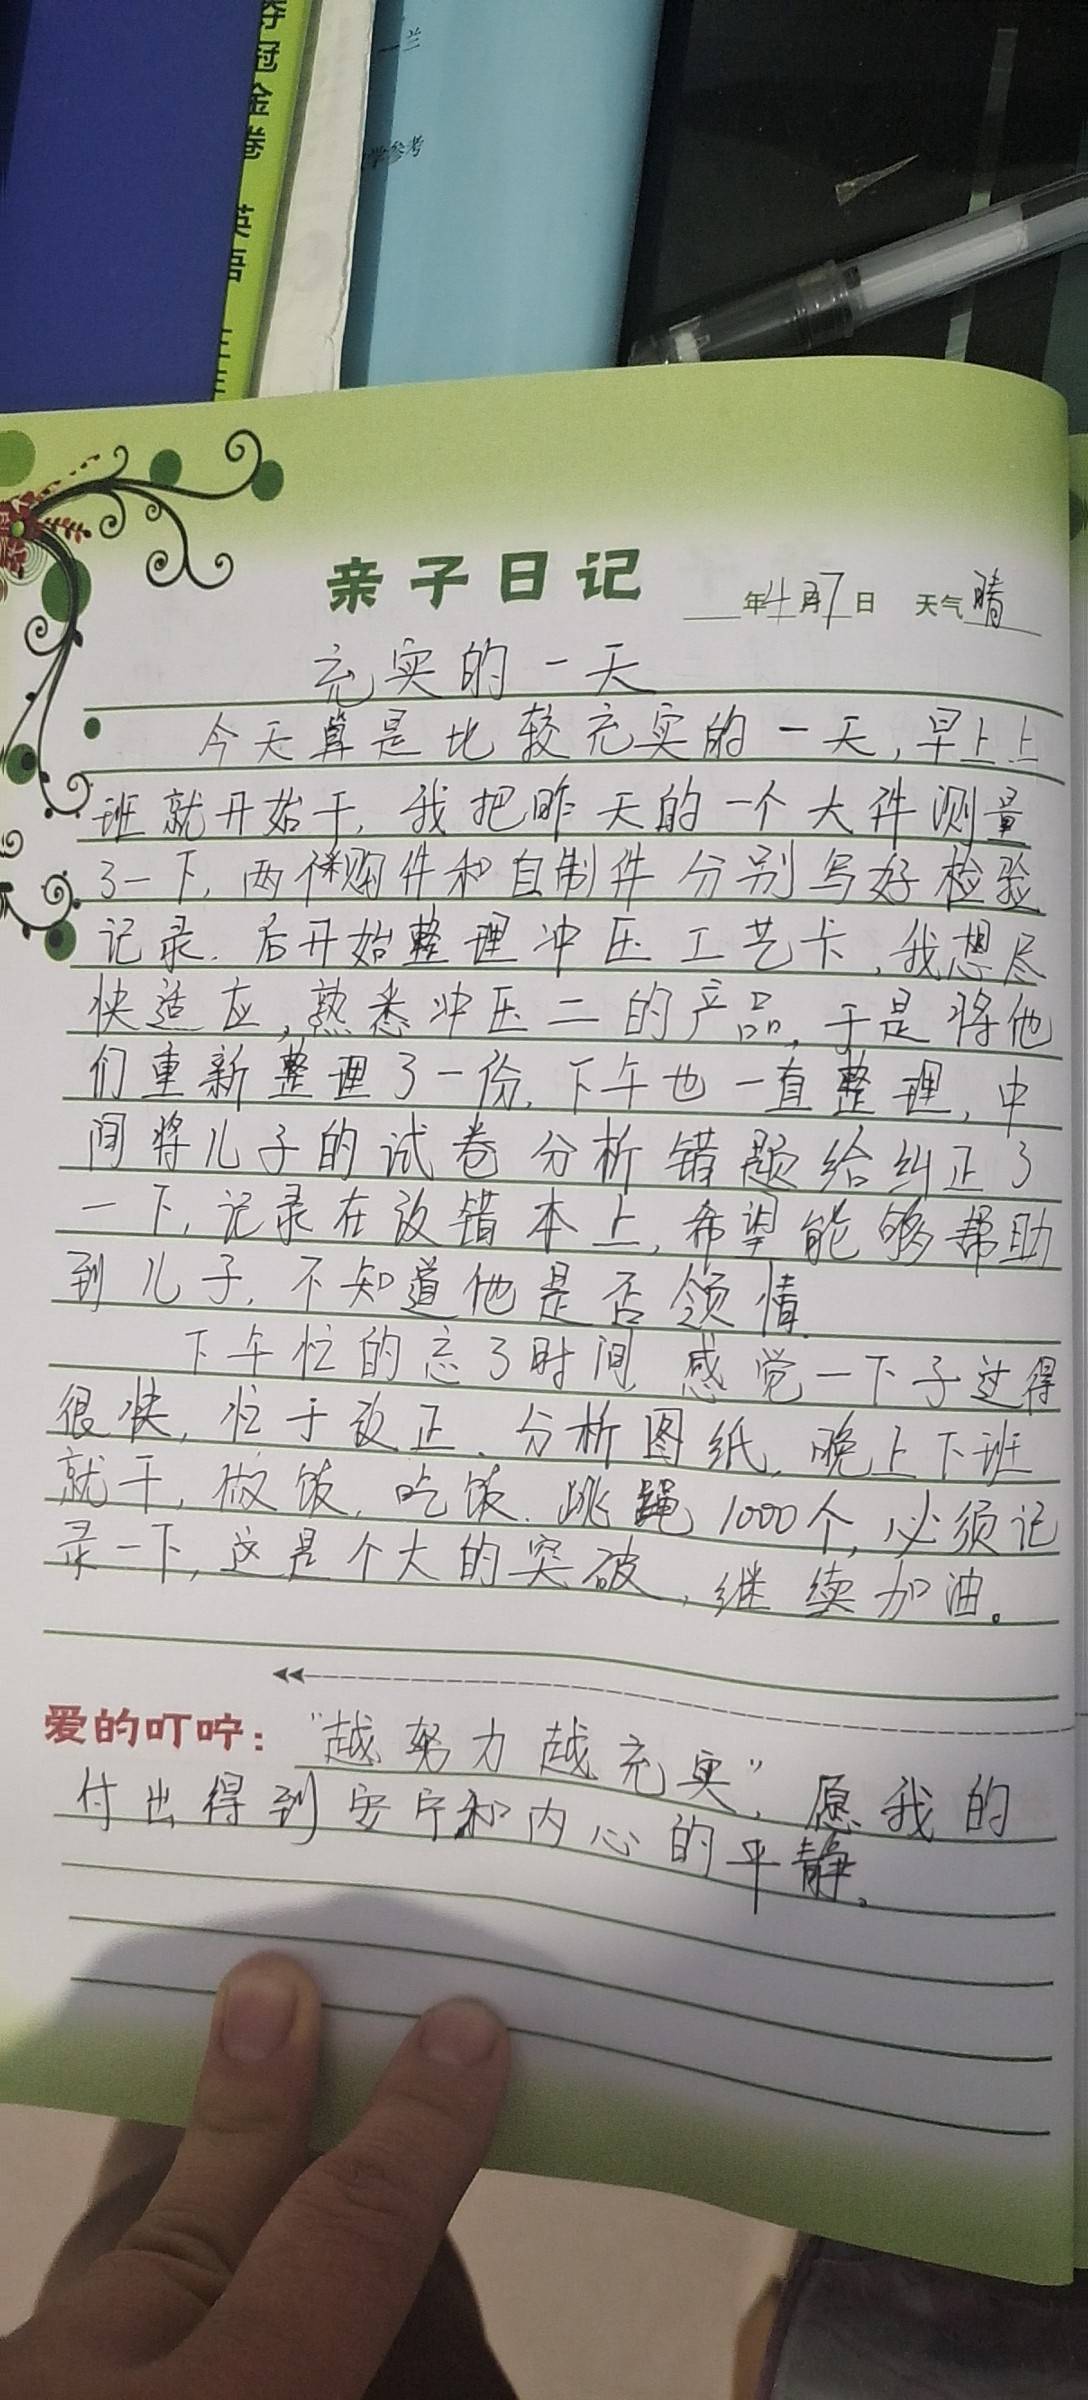 夺冠金卷 英语
一兰
学参考
亲子日记
年4月7日 天气晴
充实的一天
今天算是比较充实的一天,早上上
班就开始干,我把昨天的一个大件测量
了一下,两个采购件和自制件分别写好检验
记录.后开始整理冲压工艺卡,我想尽
快适应,熟悉冲压二的产品,于是将他
们重新整理了一份,下午也一直整理,中
间将儿子的试卷分析错题给纠正了
一下,记录在改错本上,希望能够帮助
到儿子,不知道他是否领情.
下午忙的忘了时间,感觉一下子过得
很快,忙于改正、分析图纸,晚上下班
就干,做饭,吃饭.跳绳1000个,必须记
录一下,这是个大的突破,继续加油。
爱的叮咛:"越努力越充实",愿我的
付出得到安宁和内心的平静。